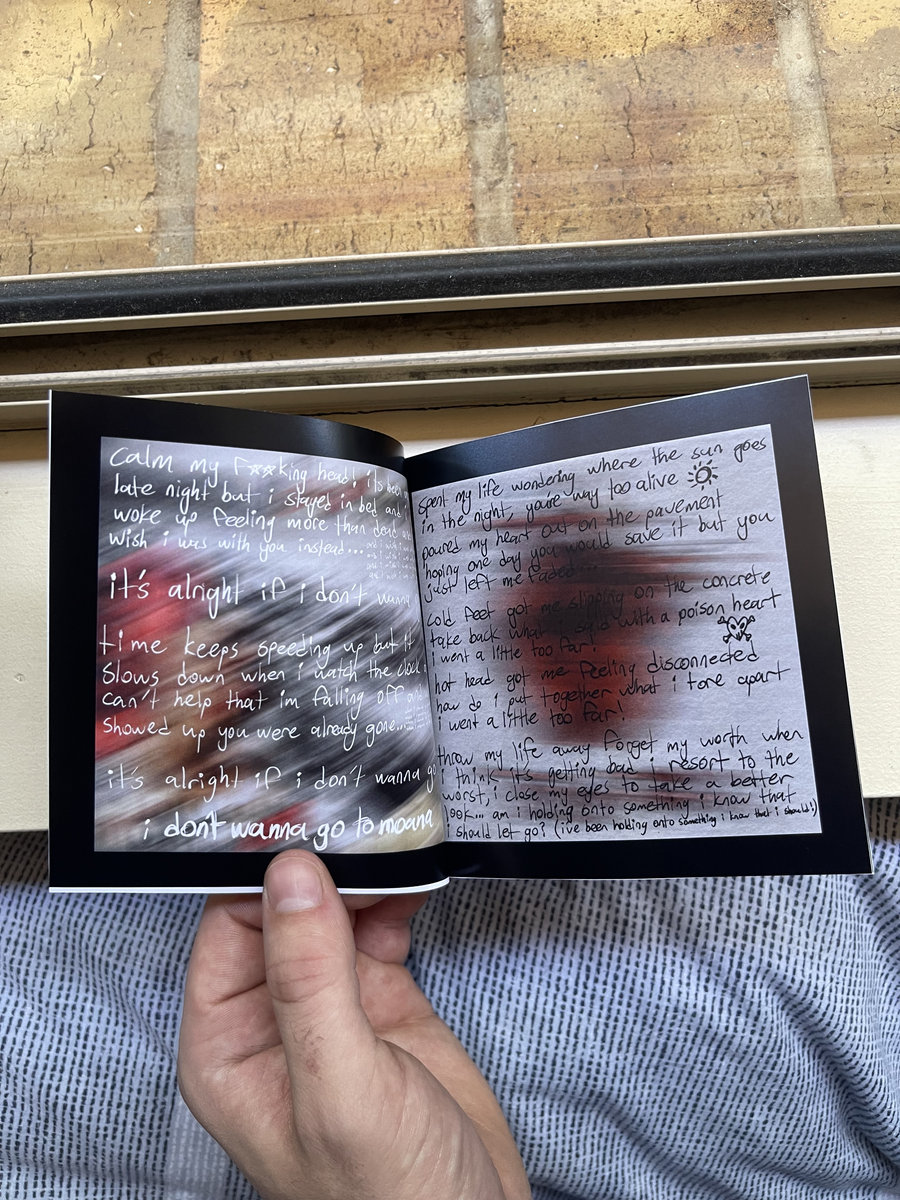 calm my f☆☆king head! it's been
late night but i stayed in bed and i
woke up feeling more than dead
wish i was with you instead...
it's alright if i don't wanna
time keeps speeding up but it
slows down when i watch the clock
can't help that im falling off and
showed up you were already gone...
it's alright if i don't wanna go
i don't wanna go to moana
spent my life wondering where the sun goes
in the night, you're way too alive
poured my heart out on the pavement
hoping one day you would save it but you
just left me faded...
cold feet got me slipping on the concrete
take back what i said with a poison heart
i went a little too far!
hot head got me feeling disconnected
how do i put together what i tore apart
i went a little too far!
throw my life away forget my worth when
i think it's getting bad i resort to the
worst, i close my eyes to take a better
look... am i holding onto something i know that
i should let go? (ive been holding onto something i know that i should!)